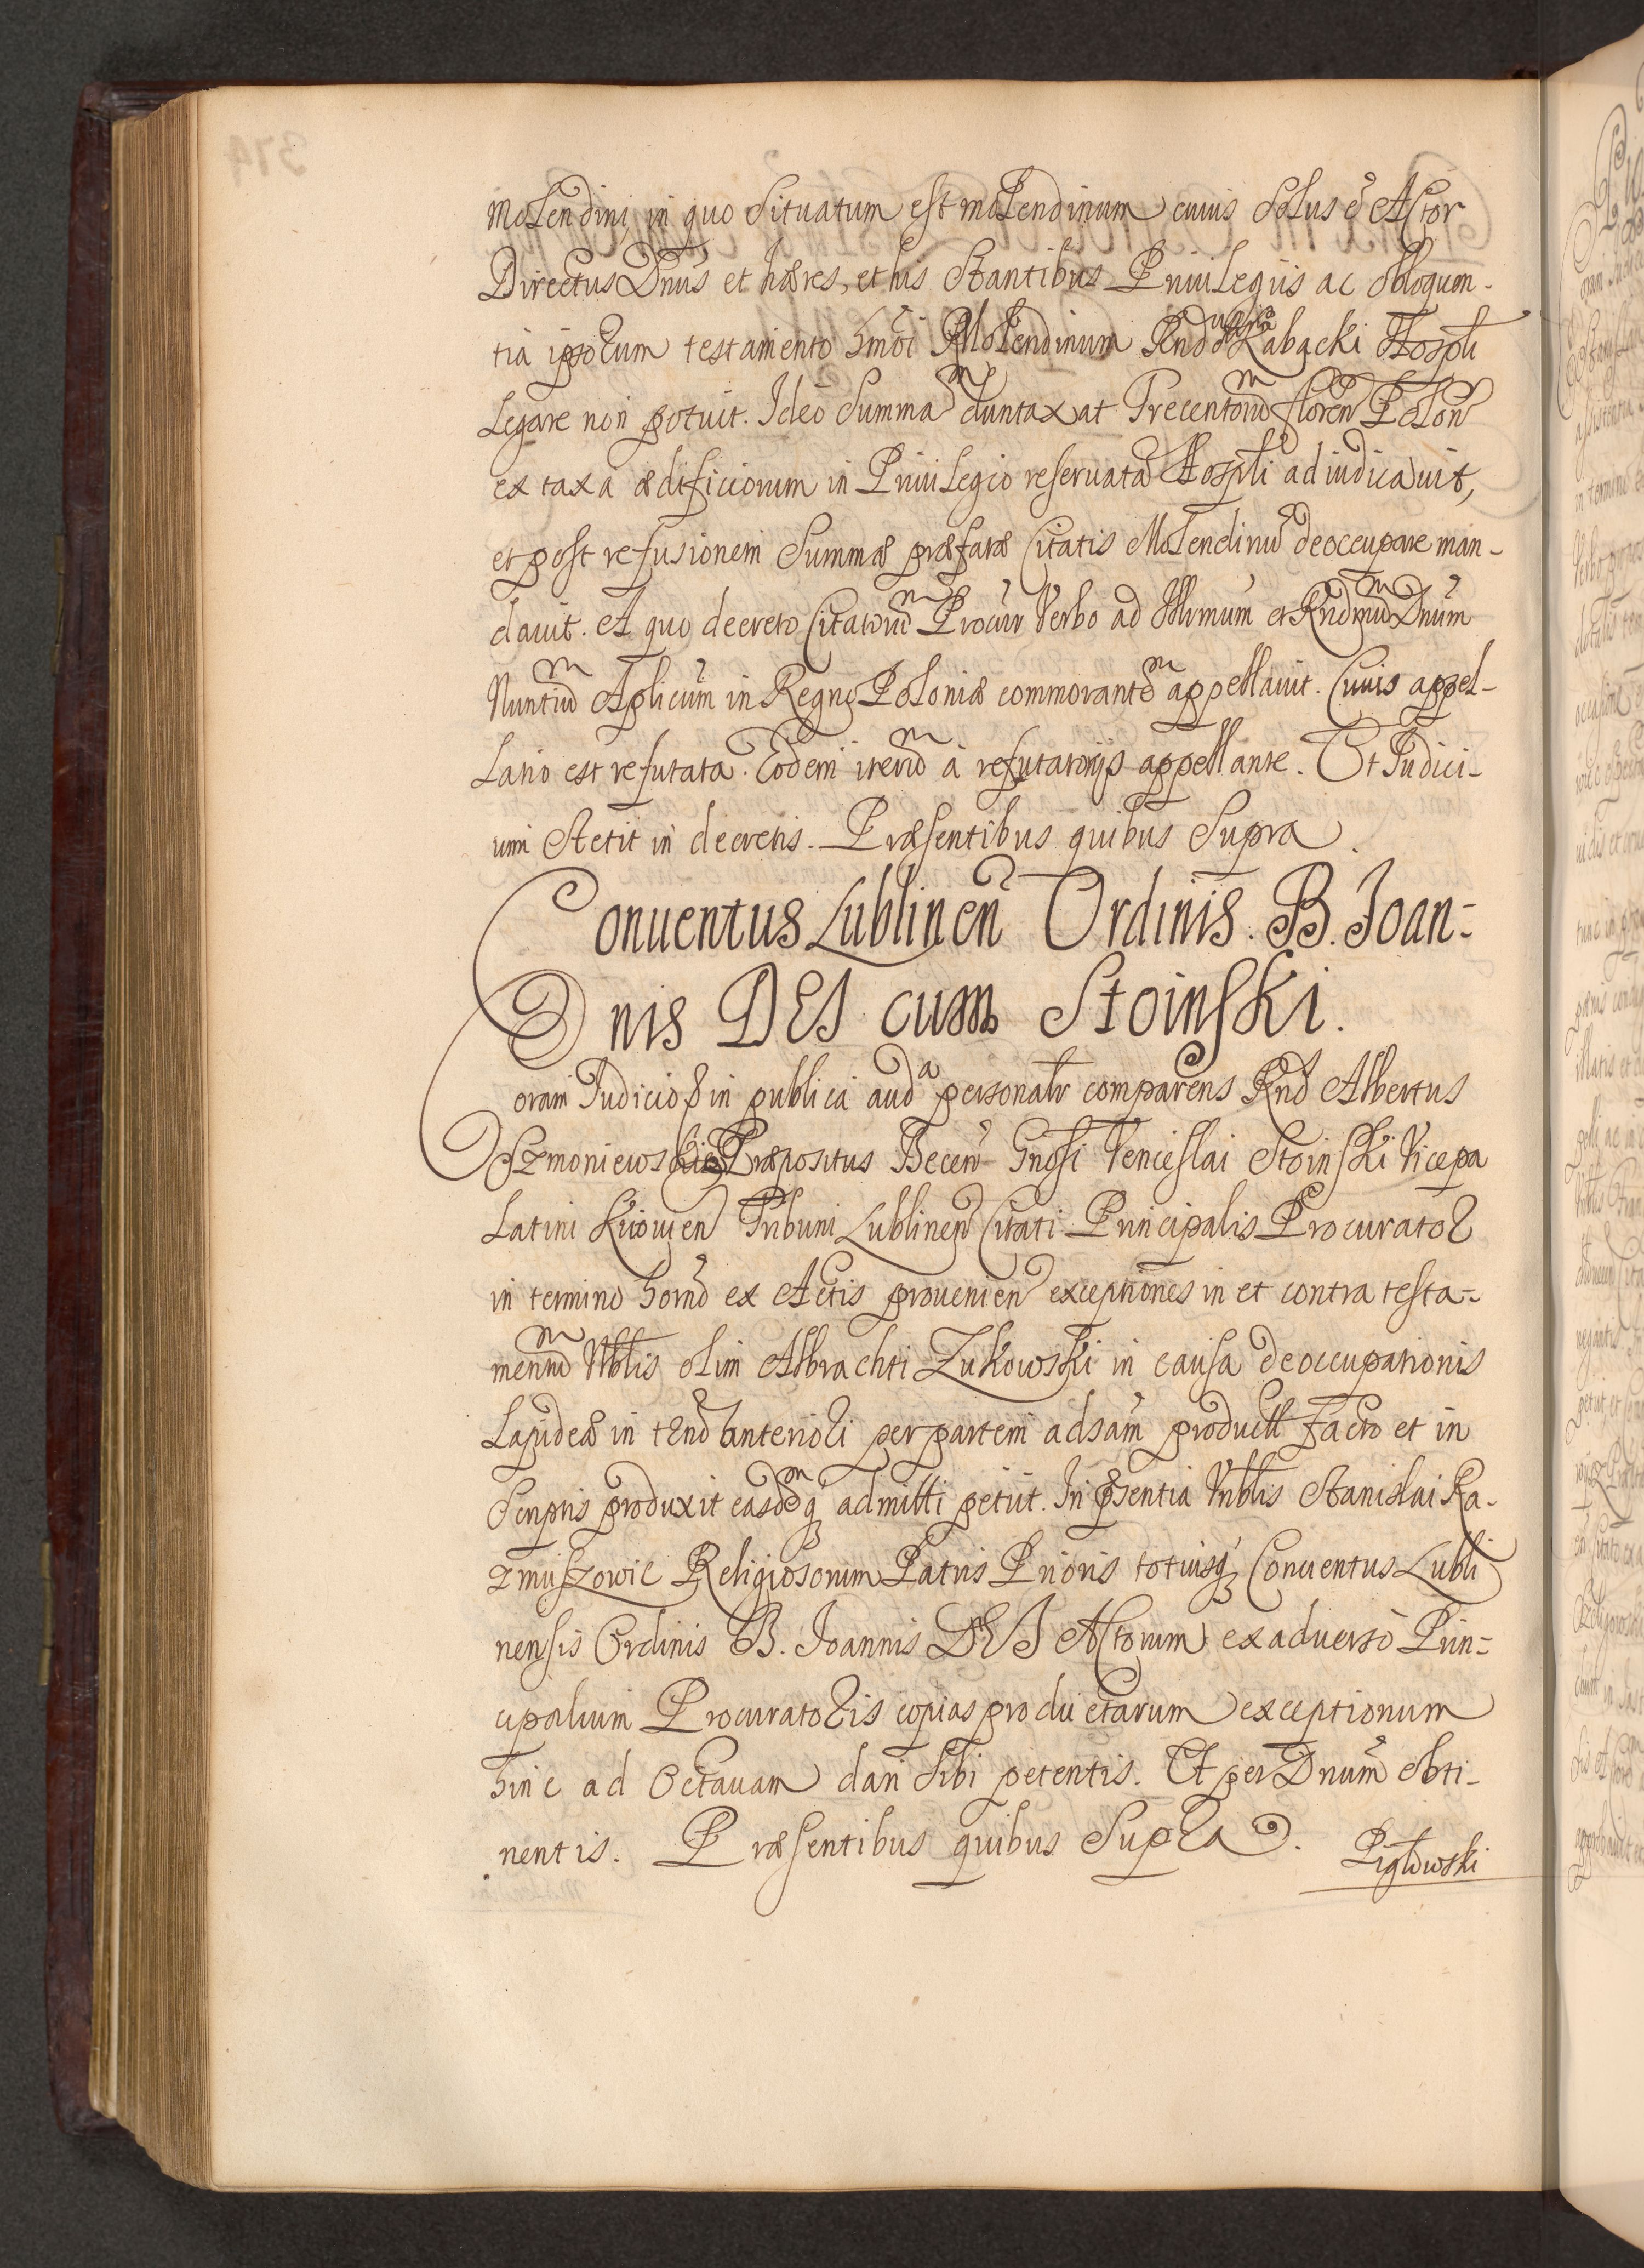 Molendini, in quo situatum est molendinum cuius solus ē Actor
Directus Dnus et hæres, et his stantibus Priuilegiis ac obloquen-
tia ipsorum testamento hmoi Molendinum Rnd Rabacki Hospli
Legare non potuit. Ideo summam duntaxat Trecentorum floren Polon
ex taxa ædificiorum in Priuilegio reseruata Hospli adiudicauit,
et post refusionem summæ præfatæ Citatis Molendinū deoccupare man-
dauit. A quo decreto Citatorum Procur Verbo ad Illrmum et Rndmum Dnum
Nuntium Aplicum in Regno Poloniæ commorantem appellauit. Cuius appel-
latio est refutata. Eodem iterum à refutatorijs appellante. Et Iudici-
um stetit in decretis. Præsentibus quibus supra.
Conuentus Lublinen Ordinis. B. Joan-
nis DEI cum Stoinski.
Coram Iudicio & in publica auda personalr comparens Rnd Albertus
Szmoniewski Præpositus Becen Gnosi Venceslai Stoinski Vicepa
latini Kiiouien Tribuni Lublinen Citati Principalis Procurator
in termino horno ex Actis prouenien exceptiones in et contra testa-
mentum Nblis olim Albrachti Zukowski in causa deoccupationis
Lapideæ in tend anteriori per partem adsam product facto et in
Scriptis produxit easdemq admitti petiit. In pesentia Nblis Stanislai Ka-
zmirzowic Religiosorum Patris Prioris totiusq Conuentus Lubli
nensis Ordinis B. Joannis DEI Actorum ex aduerso Prin-
cipalium Procuratoris copias productarum exceptionum
hinc ad Octauam dari sibi petentis. Et per Dnum obti-
nentis. Præsentibus quibus supra.
Piglowski